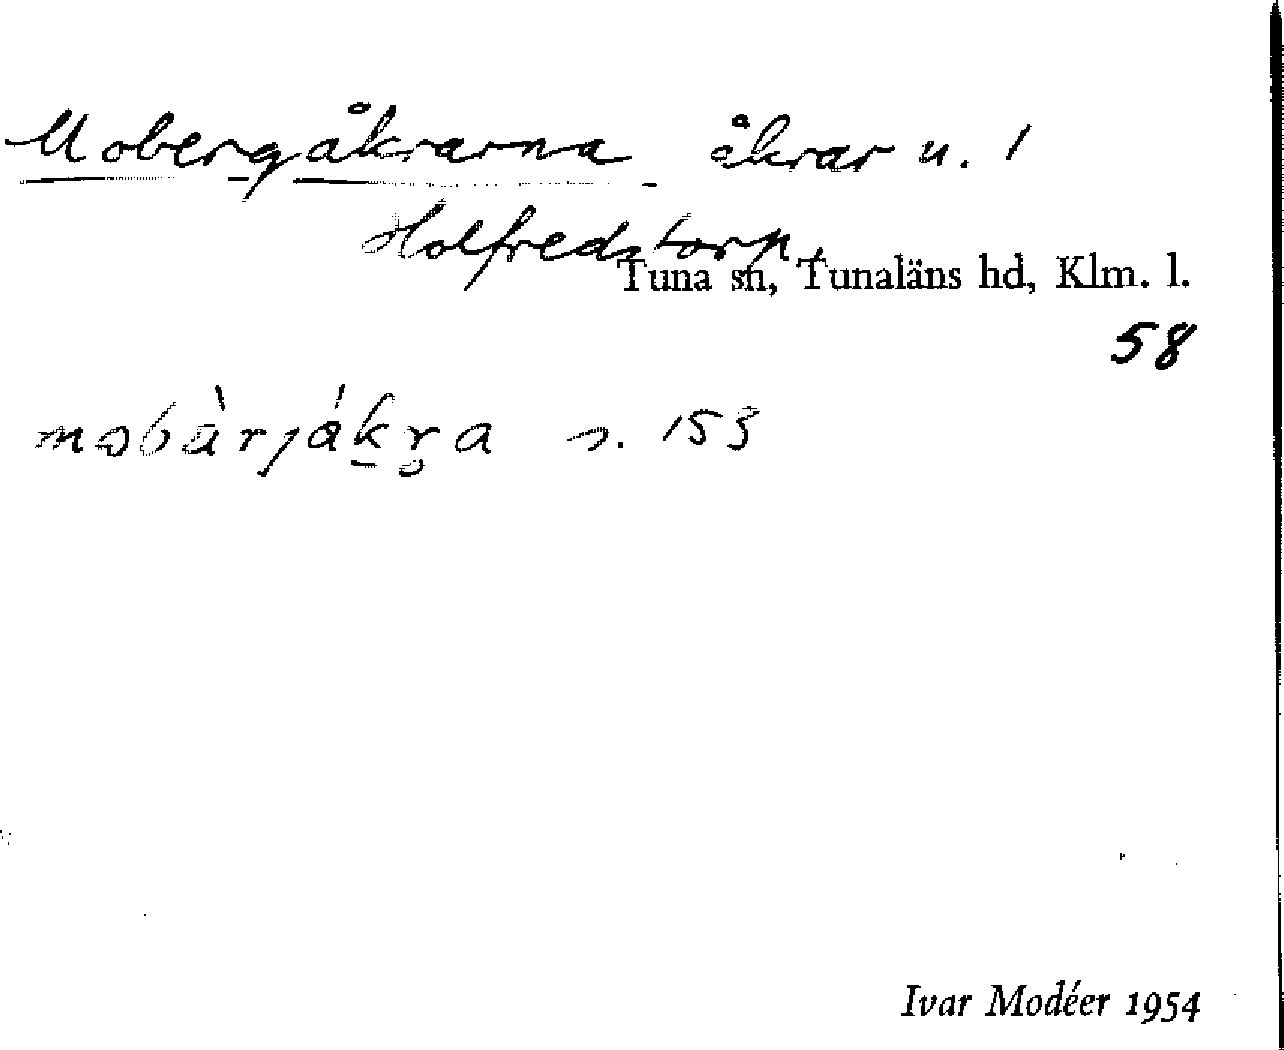 Mobergåkrarna åkrar u. 1
Holfredstorp,
Tuna sn, Tunaläns hd, Klm. l.
58
s. 153
Ivar Modéer 1954